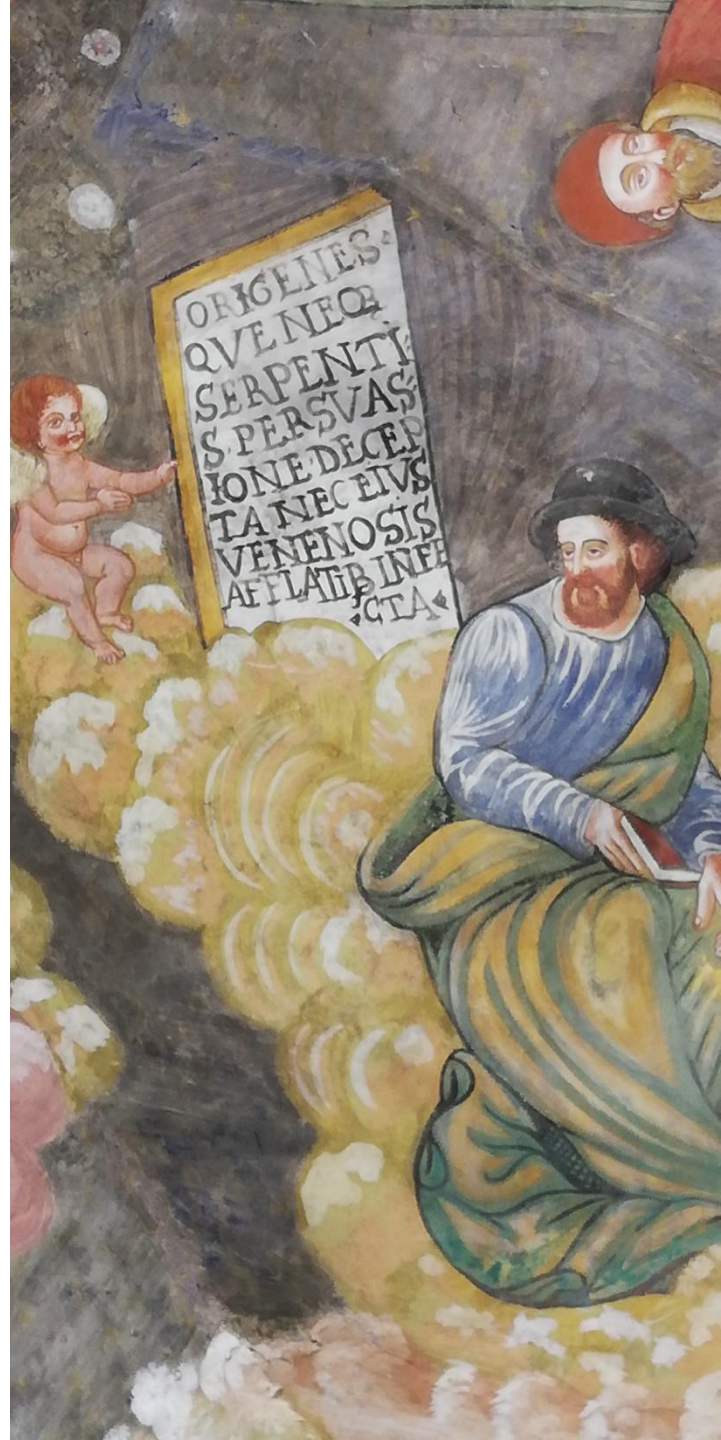 ORIGENES·
QVE NEOꝖ
SERPENTI·
S·PERSVAS·
IONE·DECEP
TA NEC EIVS
VENENOSIS
AFFLATIB INFE
·CTA·